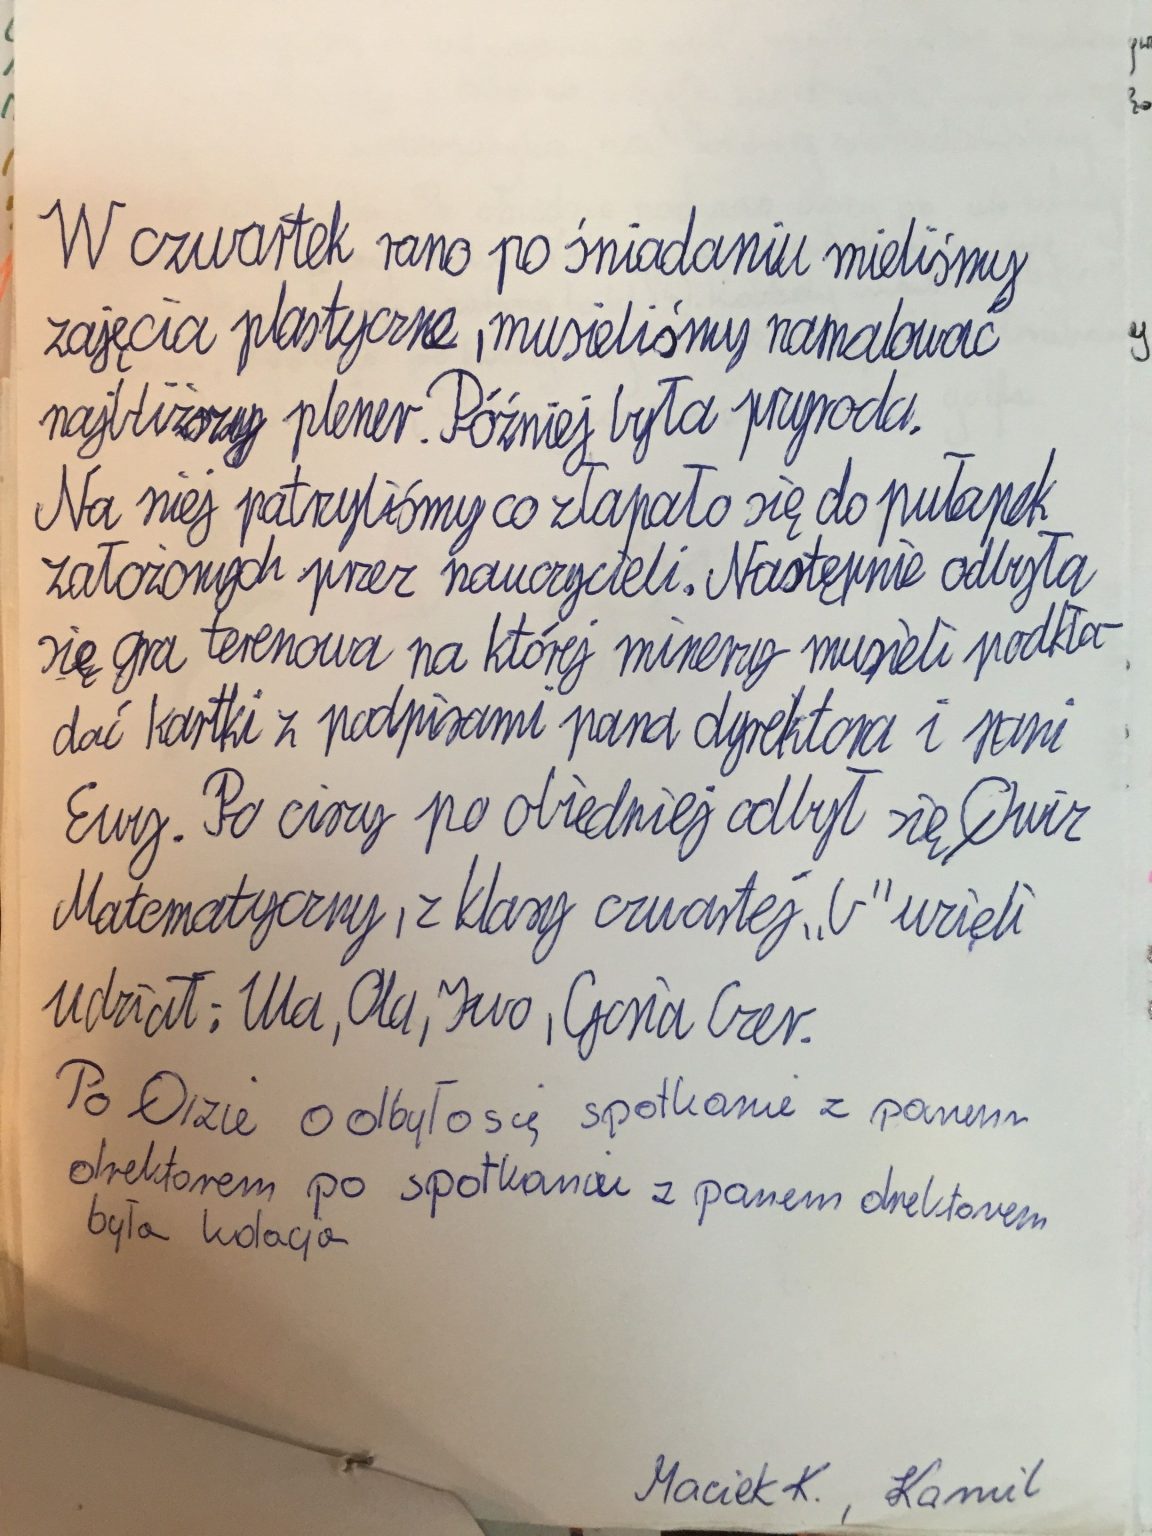 W czwartek rano po śniadaniu mieliśmy
zajęcia plastyczne, musieliśmy namalować
najbliższy plener. Później była przyroda.
Na niej patrzyliśmy co złapało się do pułapek
założonych przez nauczycieli. Następnie odbyła
się gra terenowa na której minerzy musieli podkła-
dać kartki z podpisami pana dyrektora i pani
Ewy. Po ciszy po obiedniej odbył się Qwiz
Matematyczny, z klasy czwartej „b" wzięli
udział: Ula, Ola, Iwo, Gosia Czer.
Po Qizie o odbyło się spotkanie z panem
drektorem po spotkaniu z panem drektorem
była kolacja
Maciek K., Kamil